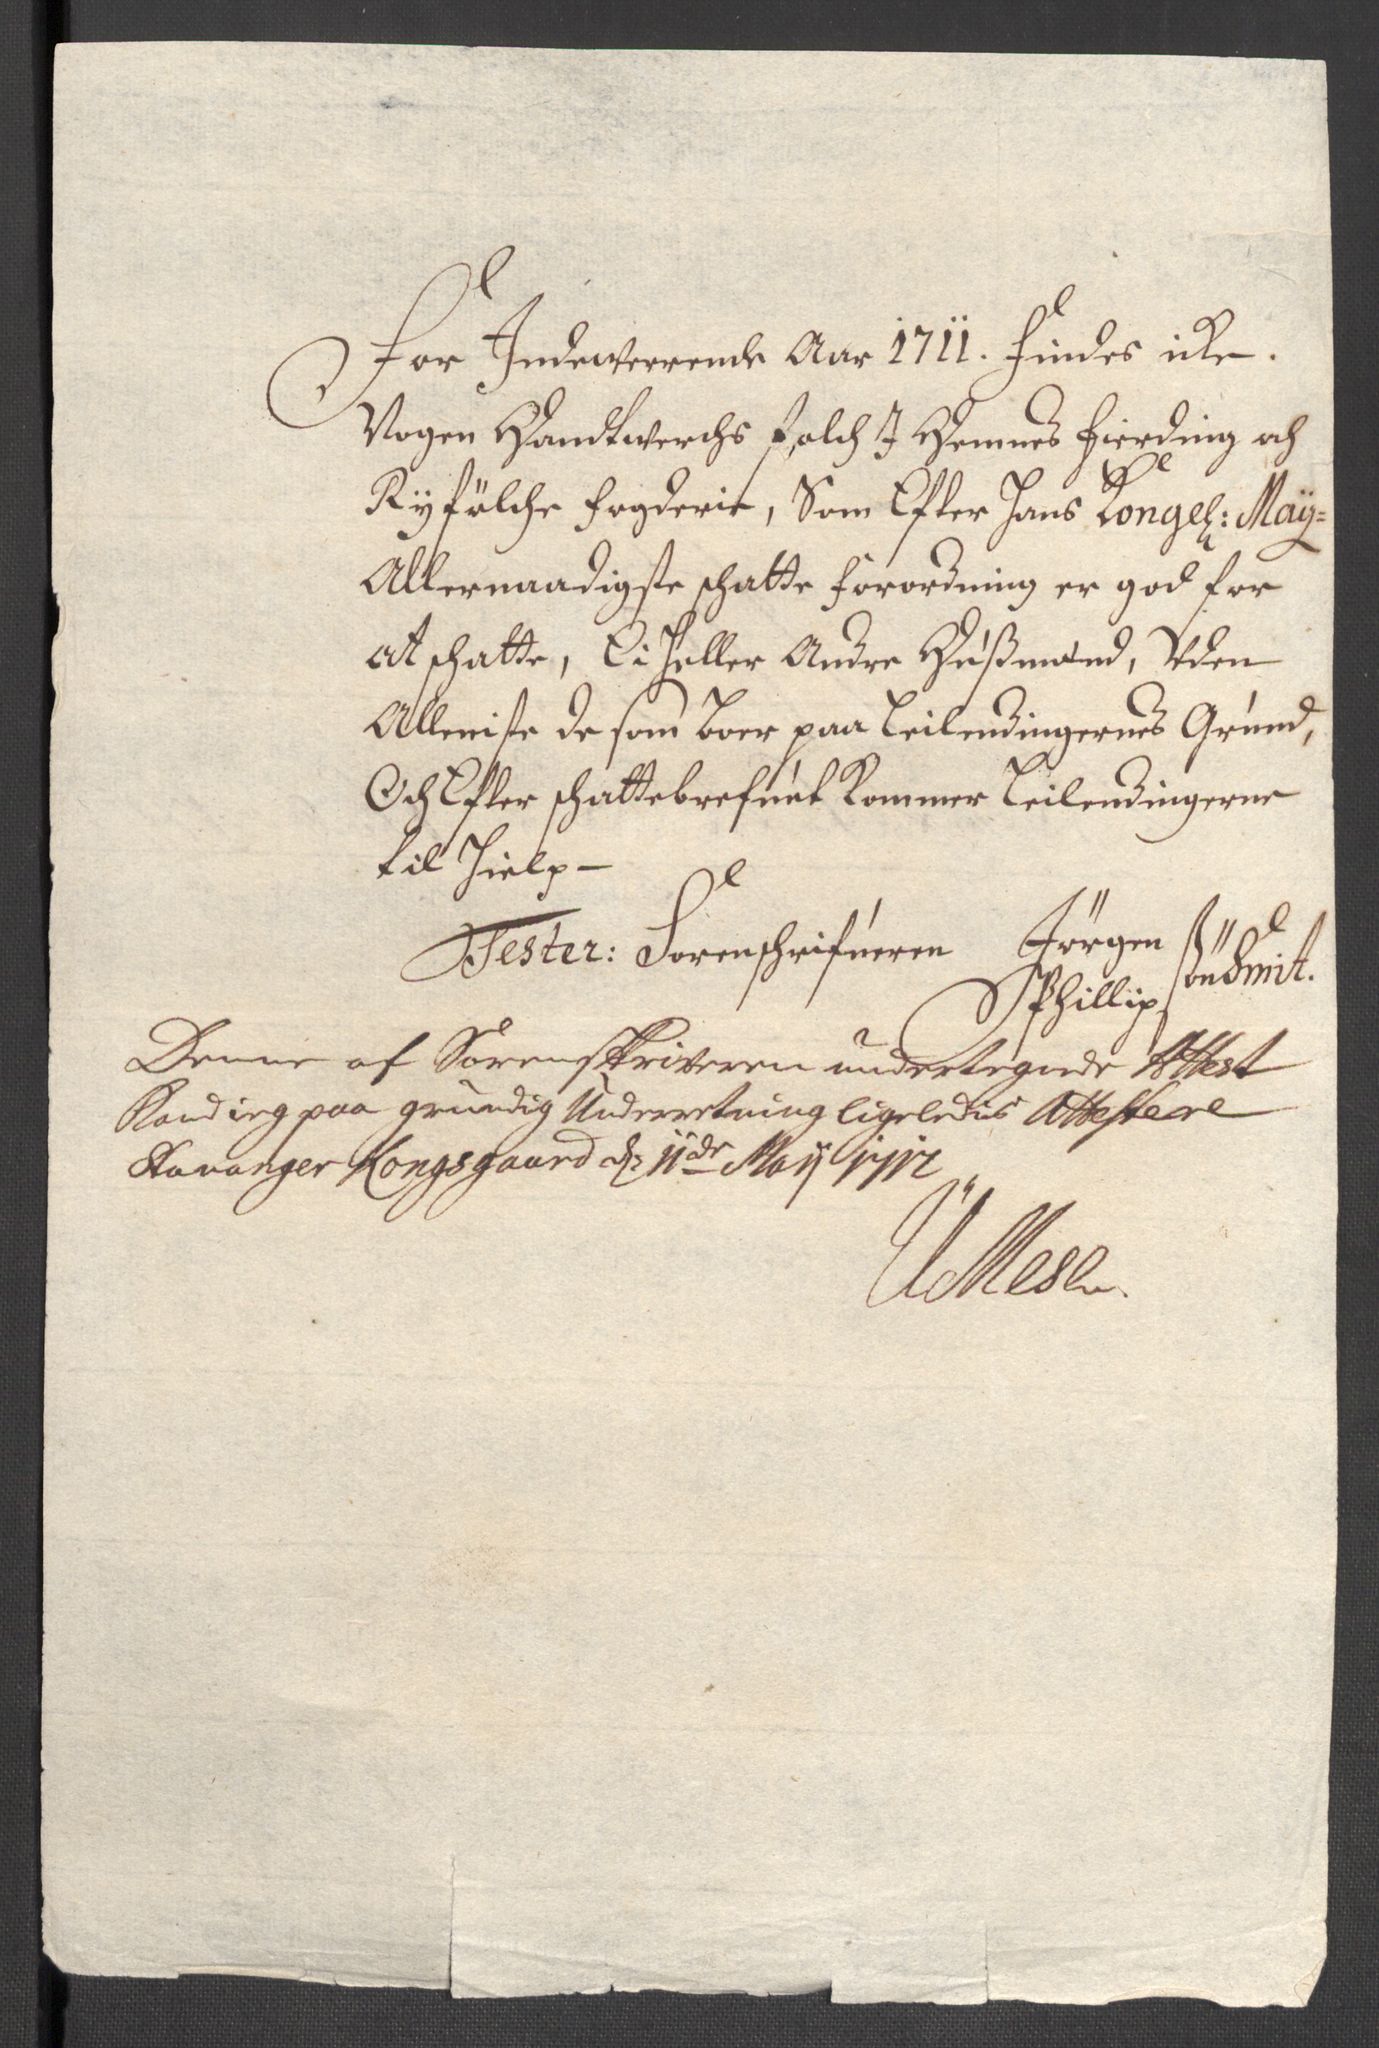 For Indewerrende Aar 1711. findes icke.
Nogen Handtwerchs folch J Hemnes fierding och
Ryfölche fogderie, Som Efter Hans Kongel: May=
Allernaadigste schatte forordning er god for
at schatte, Ei heller Andre Hußmænd, Uden
Alleniste de som boer paa Leilendingernes Grund,
Och Efter schattebrefuet kommer Leilendingerne
til Hielp-
Tester: Sorenschrifueren Jörgen
Phillip sön Smit.
Denne af Sorenskriveren undertegnede Attest
Kand ieg paa grundig Underretning ligeledis Attestere
Stavanger Kongsgaard d: 11de Maij 1712